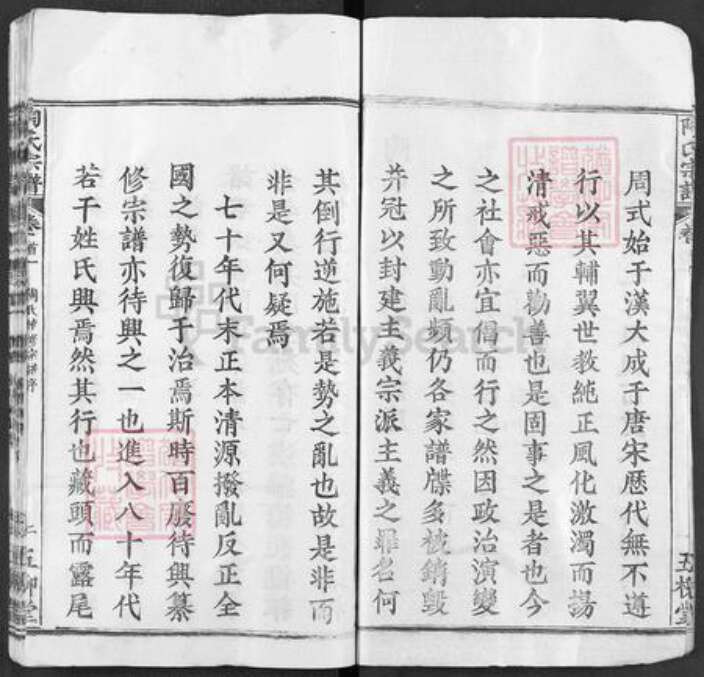 陶氏宗譜
五柳堂
周式始于漢大成于唐宋歷代無不遵
行以其輔翼世教純正風化激濁而揚
清戒惡而勸善也是固事之是者也今
之社會亦宜倡而行之然因政治演變
之所致動亂頻仍各家譜牒多被銷毀
并冠以封建主義宗派主義之罪名何
其倒行逆施若是勢之亂也故是非而
非是又何疑焉
七十年代末正本清源撥亂反正全
國之勢復歸于治焉斯時百廢待興纂
修宗譜亦待興之一也進入八十年代
若干姓氏興焉然其行也藏頭而露尾
陶氏宗譜
卷首
五柳堂
FamilySearch